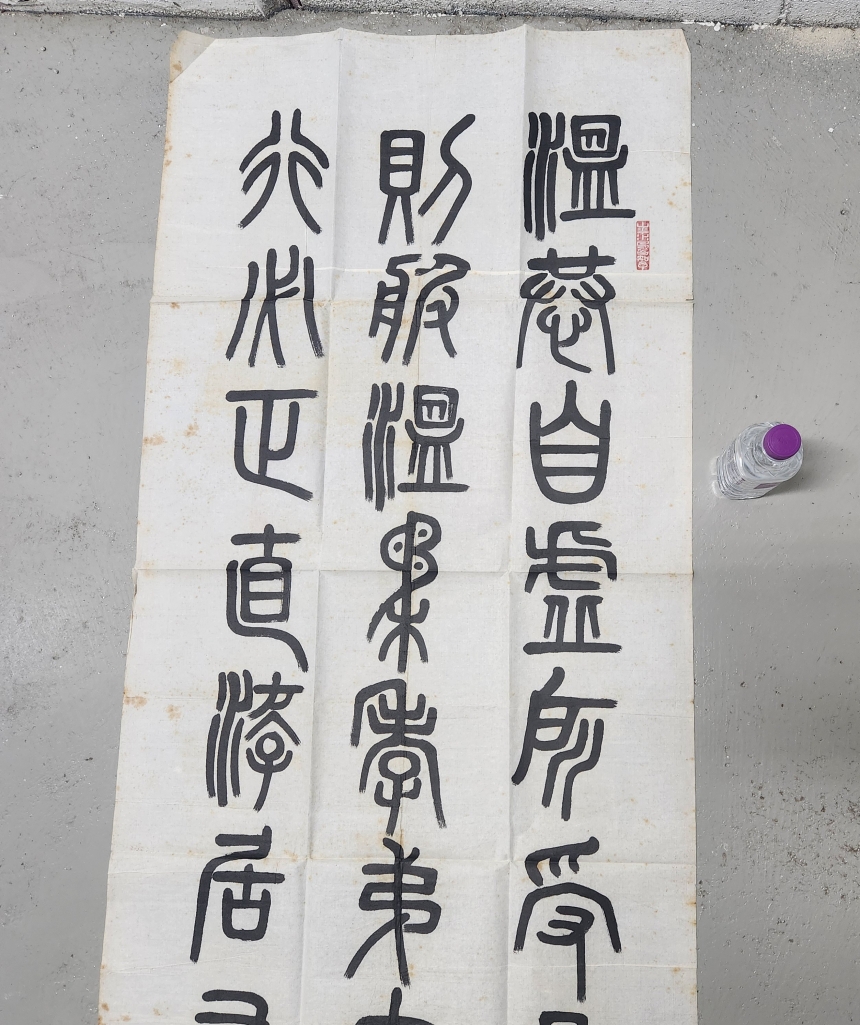 溫恭自虛所受
則服溫柔孝弟
行必正直游居